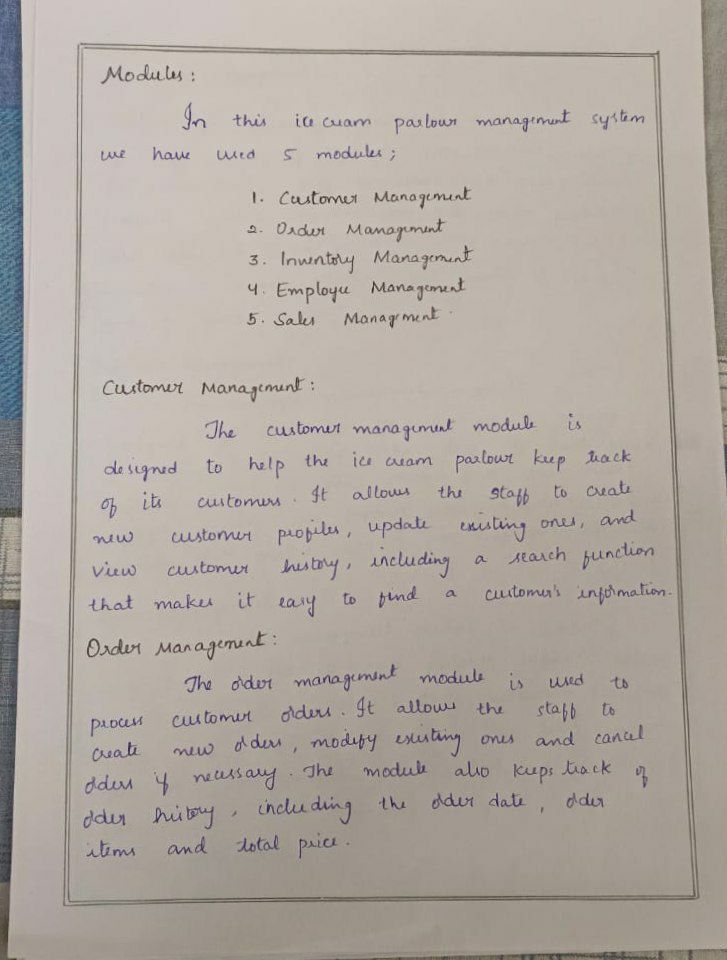 Modules :
In this ice cream parlour management system
we have used 5 modules ;
1. Customer Management
2. Order Management
3. Inventory Management
4. Employee Management
5. Sales Management
Customer Management :
The customer management module is
designed to help the ice cream parlour keep track
of its customers. It allows the staff to create
new customer profiles, update existing ones, and
view customer history, including a search function
that makes it easy to find a customer's information.
Order Management :
The order management module is used to
process customer orders. It allows the staff to
create new orders, modify existing ones and cancel
orders if necessary. The module also keeps track of
order history, including the order date, order
items and total price.